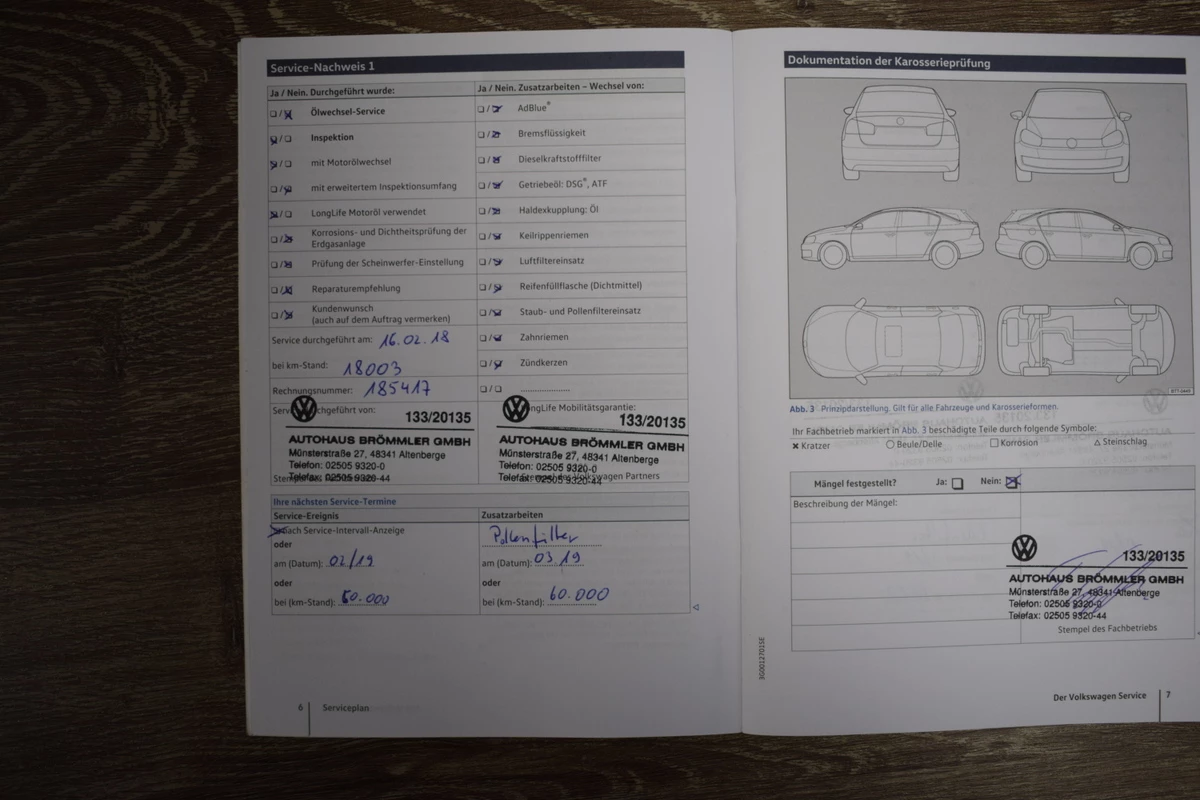 Service-Nachweis 1
Ja / Nein. Durchgeführt wurde:
Ja / Nein. Zusatzarbeiten – Wechsel von:
Ölwechsel-Service
AdBlue®
Inspektion
Bremsflüssigkeit
mit Motorölwechsel
Dieselkraftstofffilter
mit erweitertem Inspektionsumfang
Getriebeöl: DSG®, ATF
LongLife Motoröl verwendet
Haldexkupplung: Öl
Korrosions- und Dichtheitsprüfung der
Erdgasanlage
Keilrippenriemen
Prüfung der Scheinwerfer-Einstellung
Luftfiltereinsatz
Reparaturempfehlung
Reifenfüllflasche (Dichtmittel)
Kundenwunsch
(auch auf dem Auftrag vermerken)
Staub- und Pollenfiltereinsatz
Service durchgeführt am: 16.02.18
Zahnriemen
bei km-Stand: 18003
Zündkerzen
Rechnungsnummer: 185417
133/20135
AUTOHAUS BRÖMMLER GMBH
Münsterstraße 27, 48341 Altenberge
Telefon: 02505 9320-0
Telefax: 02505 9320-44
LongLife Mobilitätsgarantie:
133/20135
AUTOHAUS BRÖMMLER GMBH
Münsterstraße 27, 48341 Altenberge
Telefon: 02505 9320-0
Telefax: 02505 9320-44
Ihre nächsten Service-Termine
Service-Ereignis
Zusatzarbeiten
nach Service-Intervall-Anzeige
Pollenfilter
oder
am (Datum): 02/19
am (Datum): 03.19
oder
oder
bei (km-Stand): 60.000
bei (km-Stand): 60.000
6 Serviceplan
Dokumentation der Karosserieprüfung
Abb. 3 Prinzipdarstellung. Gilt für alle Fahrzeuge und Karosserieformen.
Ihr Fachbetrieb markiert in Abb. 3 beschädigte Teile durch folgende Symbole:
Kratzer
Beule/Delle
Korrosion
Steinschlag
Mängel festgestellt? Ja: Nein:
Beschreibung der Mängel:
133/20135
AUTOHAUS BRÖMMLER GMBH
Münsterstraße 27, 48341 Altenberge
Telefon: 02505 9320-0
Telefax: 02505 9320-44
Stempel des Fachbetriebs
3G0012701SE
Der Volkswagen Service 7